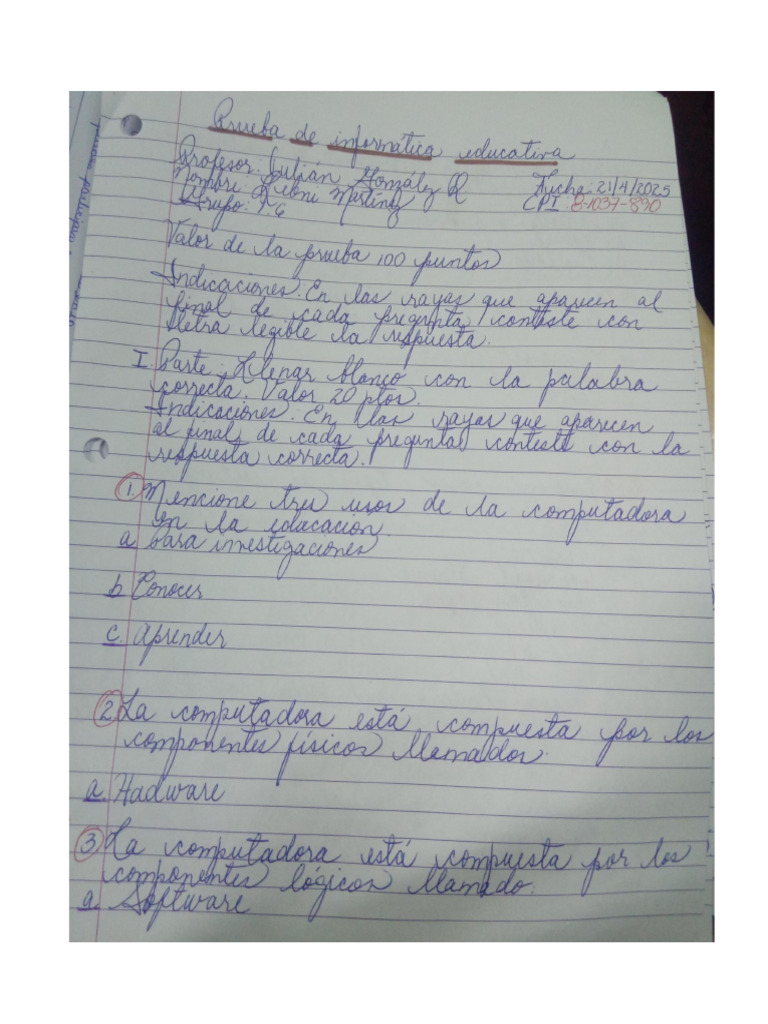 Prueba de informática educativa
Profesor: Julián González R
Nombre: Martínez Fecha: 21/4/2025
Grupo: CPI: 8-1037-890
Valor de la prueba 100 puntos
Indicaciones: En las rayas que aparecen al
final de cada pregunta conteste con
letra legible la respuesta.
I. Parte: Llenar blanco con la palabra
correcta. Valor 20 ptos.
Indicaciones: En las rayas que aparecen
al final de cada pregunta conteste con la
respuesta correcta.
1. Mencione tres usos de la computadora
en la educación.
a para investigaciones
b Conocer
c. aprender
2 La computadora está compuesta por los
componentes físicos llamados.
a. Hadware
3 La computadora está compuesta por los
componentes lógicos llamado:
a. Software